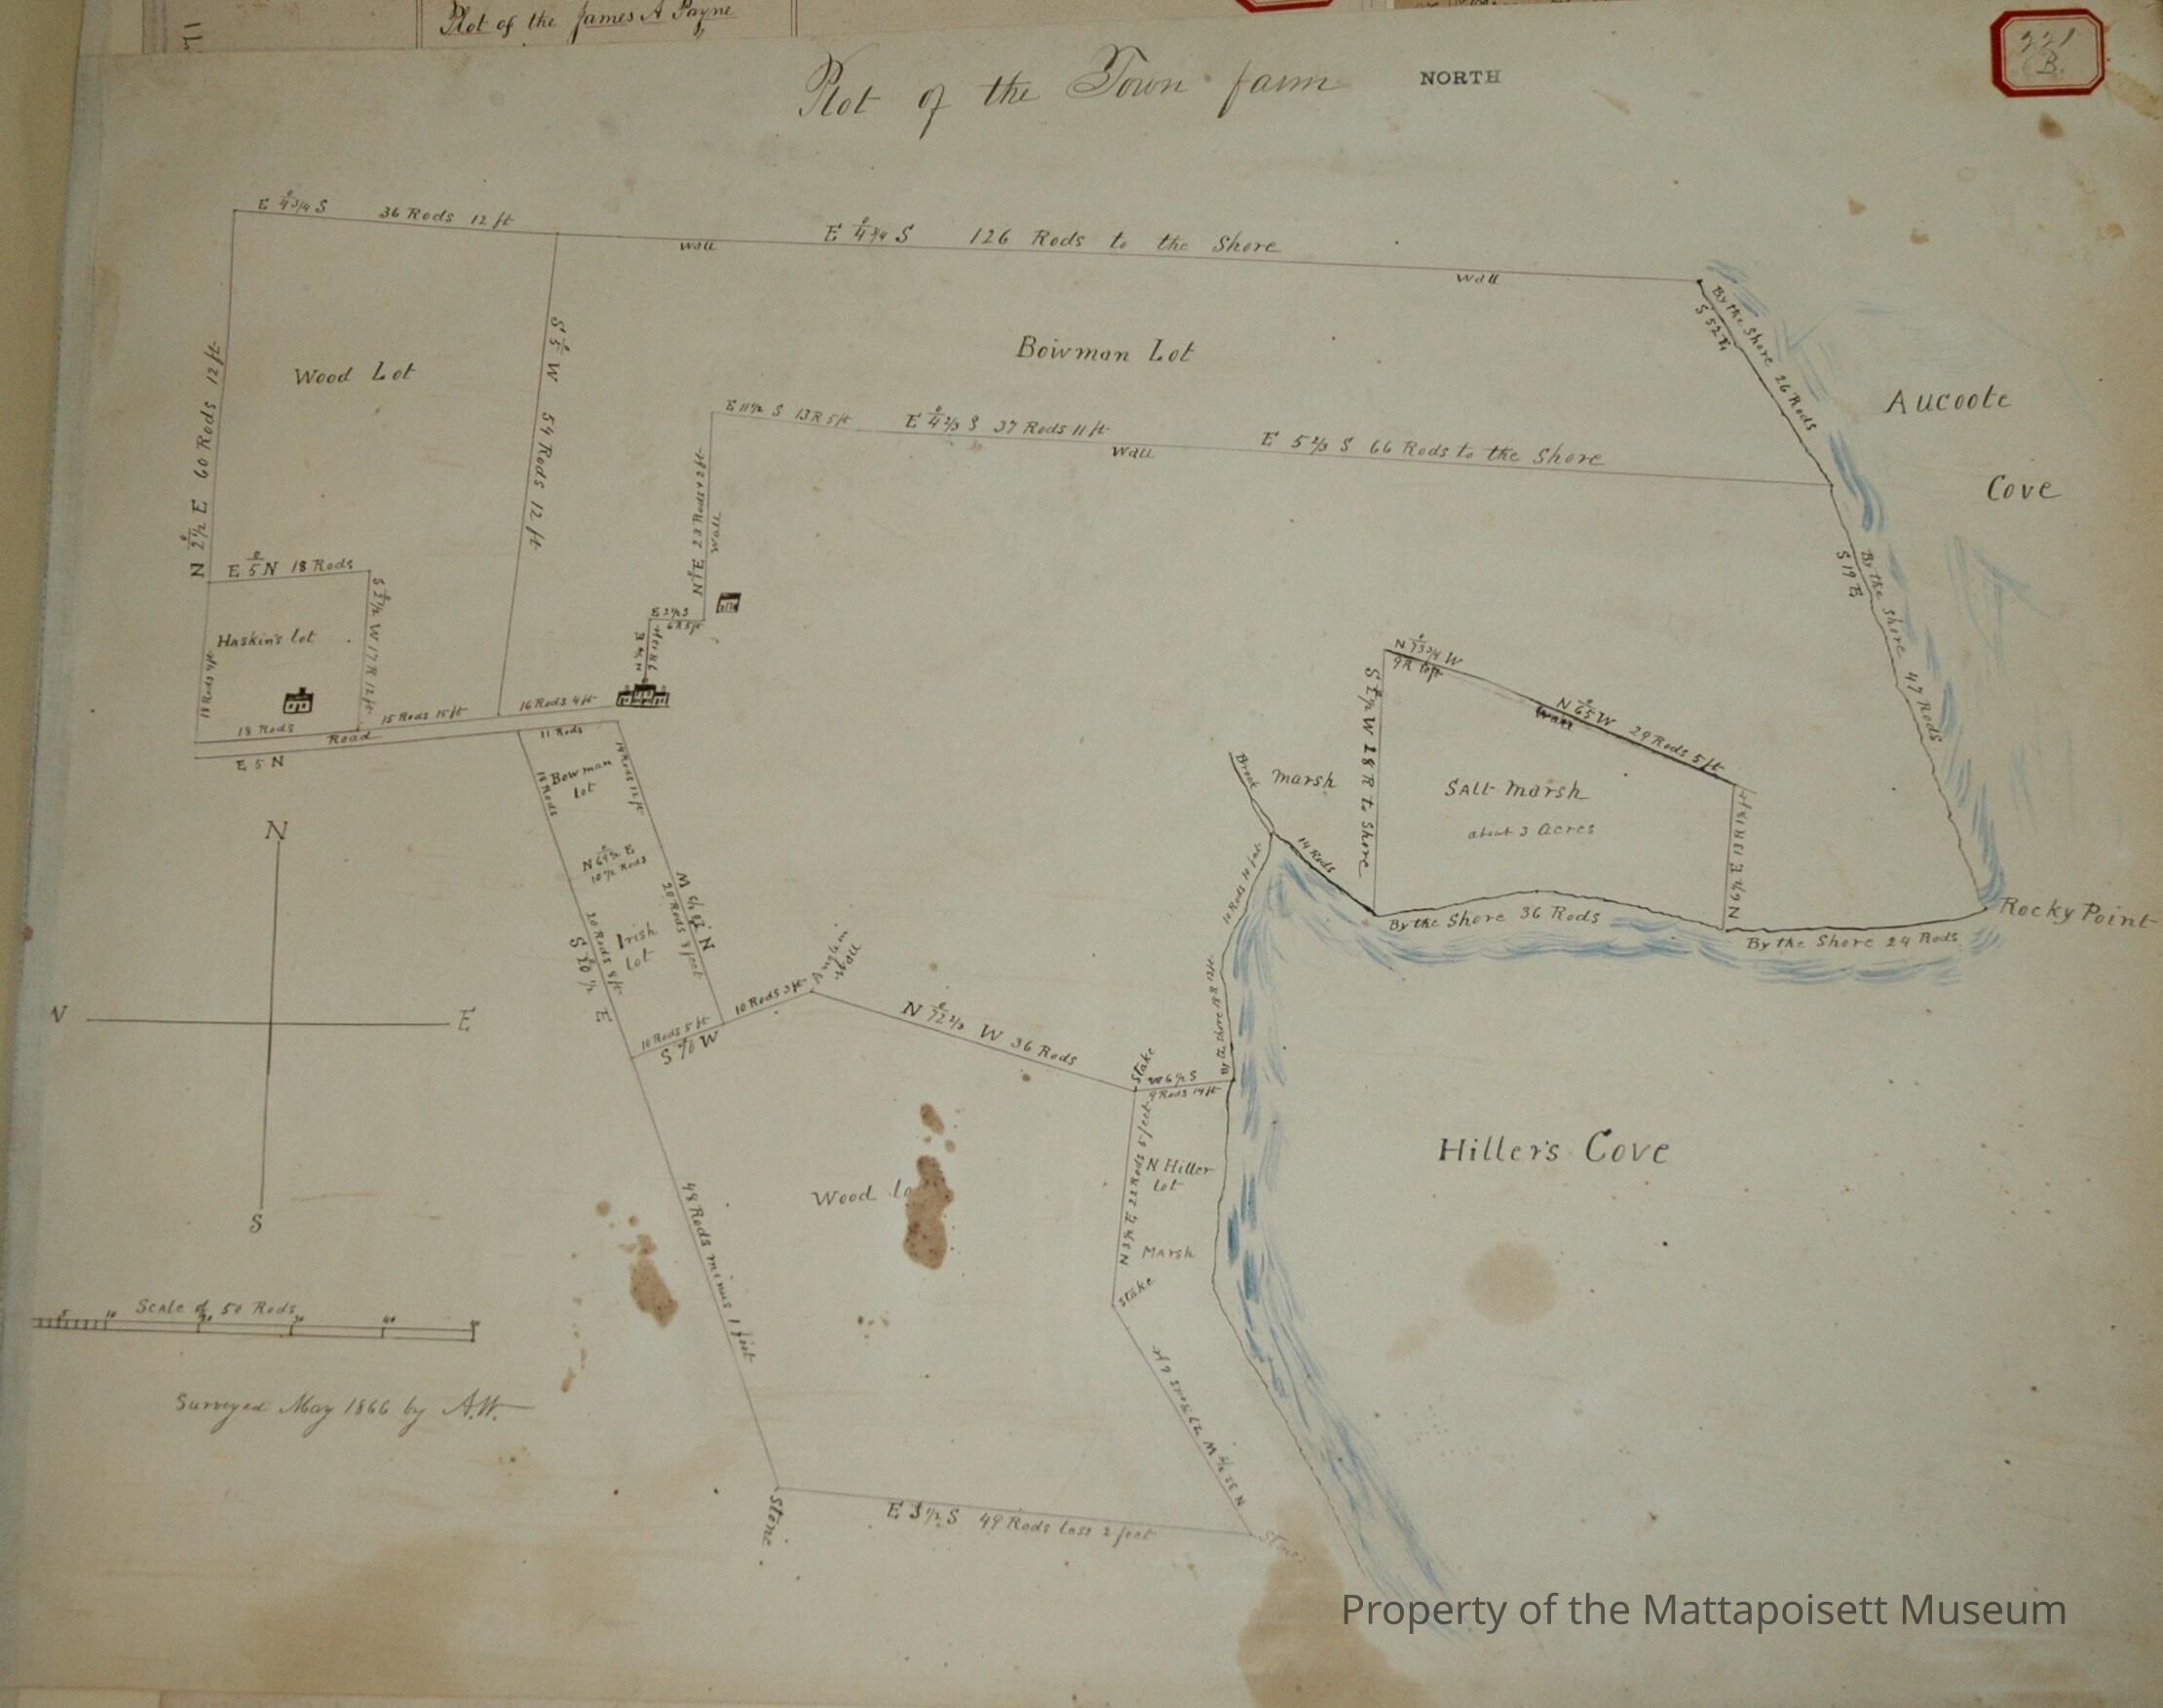 Plot of the James A Payne
Plot of the Town farm
NORTH
221
B.
E 4 3/4 S 36 Rods 12 ft
wall
E 4 3/4 S 126 Rods to the Shore
wall
By the Shore 26 Rods
S 52 E
N 2 1/2 E 60 Rods 12 ft
Wood Lot
S 5 W 54 Rods 12 ft
Bowman Lot
Aucoote
Cove
E 11 1/2 S 13 R 5 ft
E 4 2/3 S 37 Rods 11 ft
wall
E 5 2/3 S 66 Rods to the Shore
N 1 E 23 Rods 2 ft
wall
E 5 N 18 Rods
Haskin's lot
18 Rods 4 ft
W 17 R 12 ft
18 Rods
15 Rods 15 ft
16 Rods 4 ft
Road
E 5 N
By the Shore 47 Rods
S 19 E
N 73 3/4 W
N 65 W 29 Rods 5 ft
wall
S 2 1/2 W 28 R to Shore
Salt marsh
about 3 Acres
Brook
marsh
14 Rods
By the Shore 36 Rods
By the Shore 24 Rods
Rocky Point
11 Rods
Bowman
lot
18 Rods
14 Rods 12 ft
10 1/2 Rods
Irish
Lot
20 Rods 8 ft
20 Rods 8 feet
S 20 1/2 E
10 Rods 5 ft
S 70 W
10 Rods 3 ft
Angle in
wall
N 72 2/3 W 36 Rods
Stake
W 6 1/2 S
9 Rods 14 ft
By the shore 18 R 12 ft
N
W
E
S
N 3 1/2 E 22 Rods 5 feet
N Hiller
Lot
Marsh
Stake
Hiller's Cove
Wood lo
48 Rods minus 1 foot
Scale of 50 Rods
10 20 30 40
Surveyed May 1866 by A.H.
Stone
E 3 1/2 S 49 Rods less 2 feet
Property of the Mattapoisett Museum